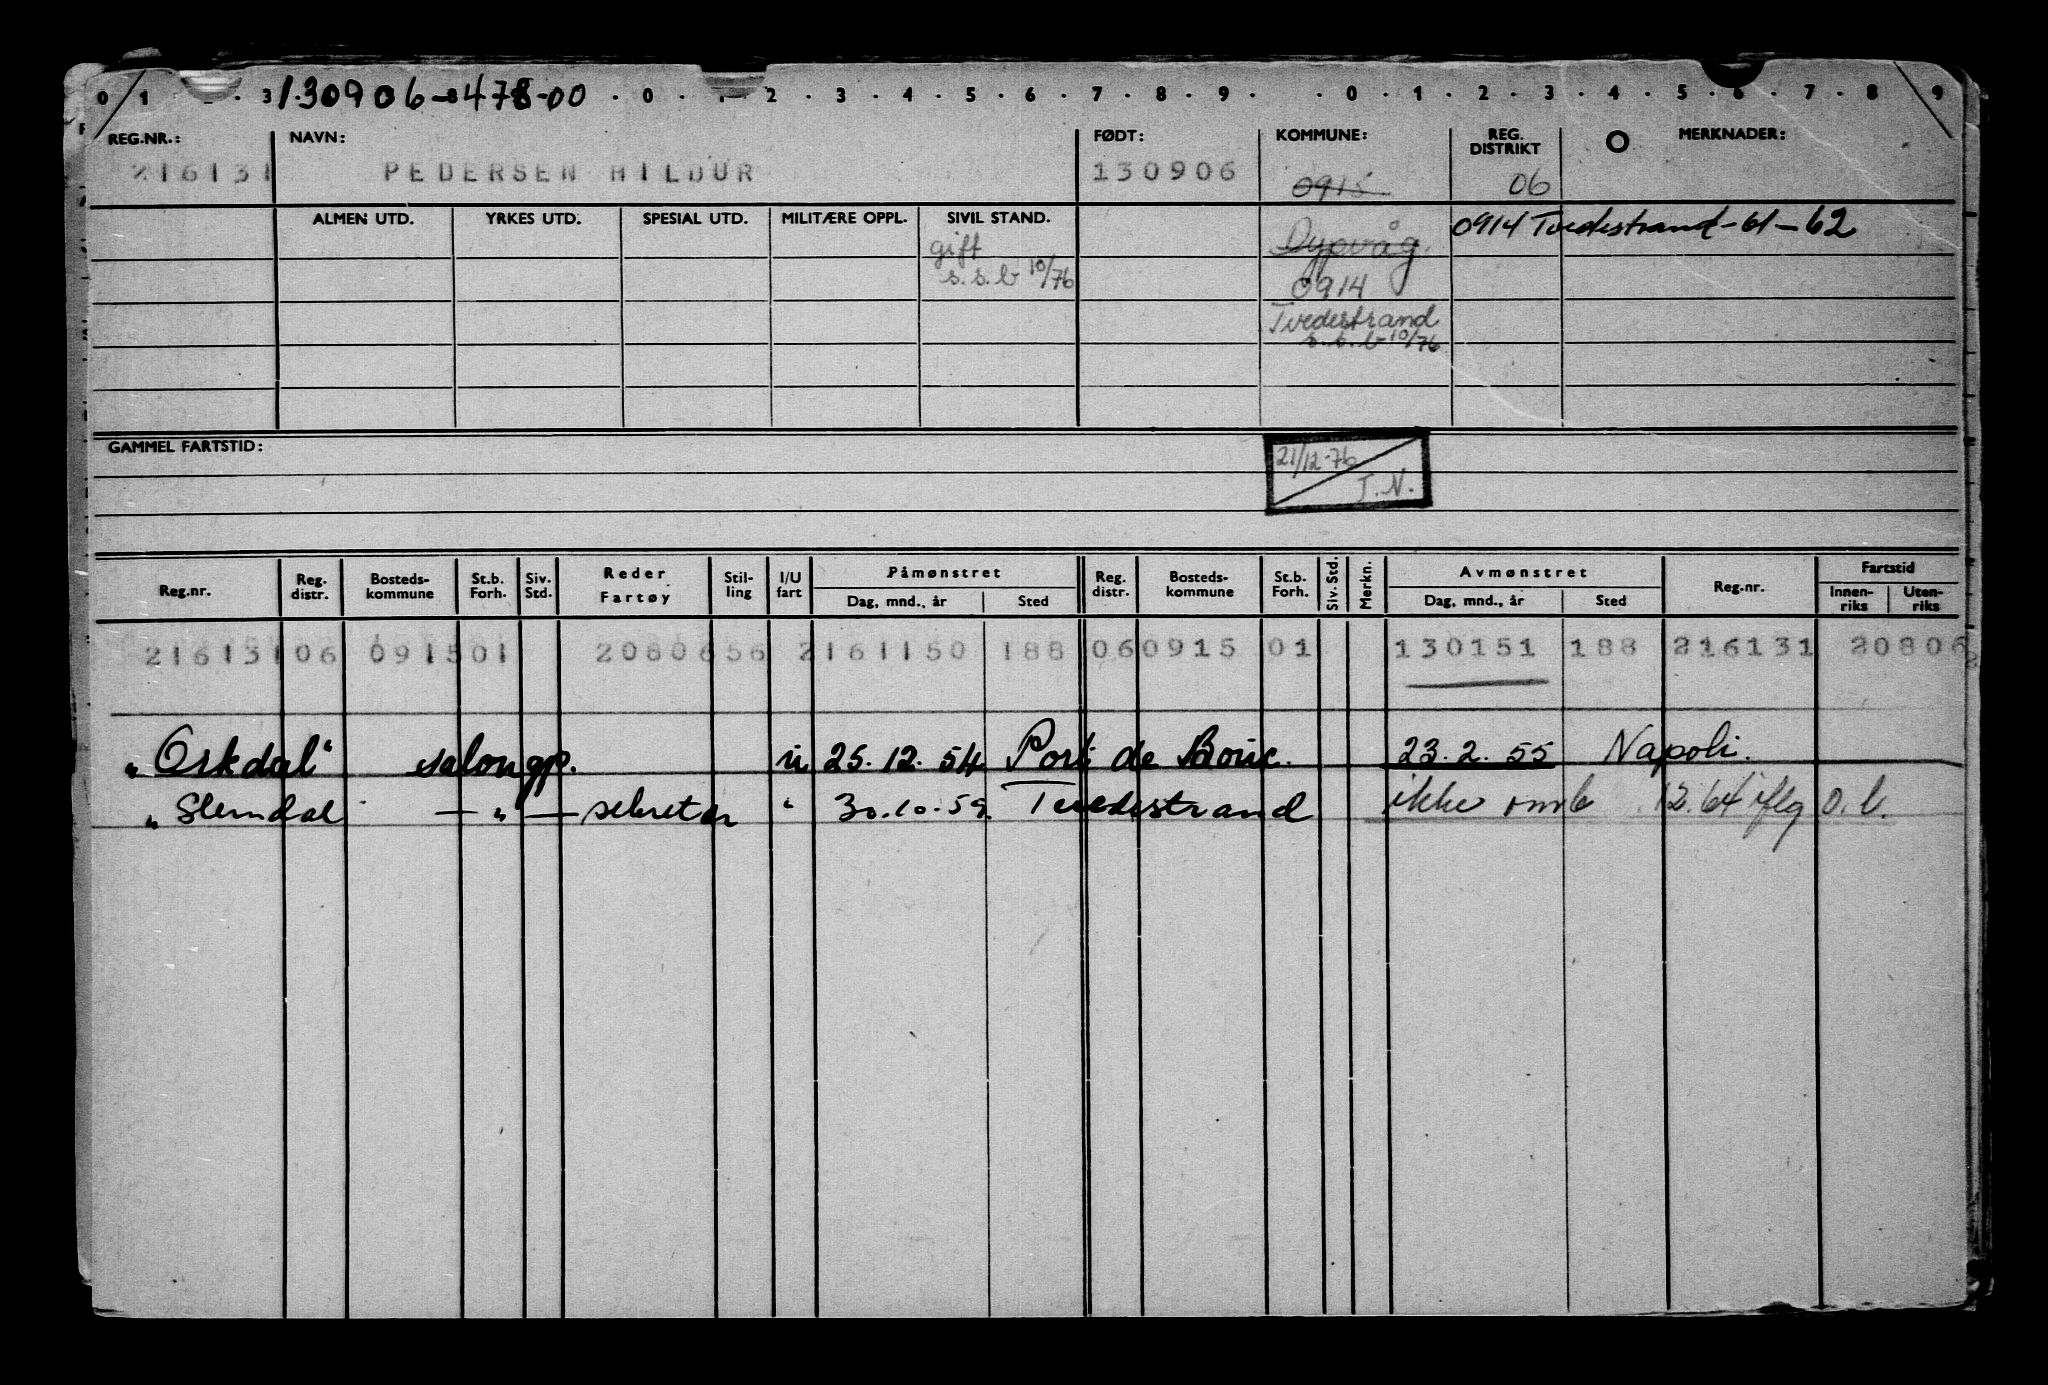 130906-478-00
0 1 3 0 1 2 3 4 5 6 7 8 9 0 1 2 3 4 5 6 7 8 9
REG.NR.: NAVN: FØDT: KOMMUNE: REG. DISTRIKT MERKNADER:
216131 PEDERSEN HILDUR 130906 0915 06
ALMEN UTD. YRKES UTD. SPESIAL UTD. MILITÆRE OPPL. SIVIL STAND.
gift Dypvåg. 0914 Tvedestrand-61-62
s.s.b 10/76 0914
Tvedestrand
s.s.b 10/76
GAMMEL FARTSTID:
21/12-76
I.N.
Reg.nr. Reg. distr. Bosteds-kommune St.b. Forh. Siv. Std. Reder Fartøy Stil-ling I/U fart Påmønstret Reg. distr. Bosteds-kommune St.b. Forh. Siv. Std. Merkn. Avmønstret Reg.nr. Fartstid
Dag, mnd., år Sted Dag, mnd., år Sted Innen-riks Uten-riks
216131 06 0915 01 20806 56 2 161150 188 06 0915 01 130151 188 216131 20806
"Orkdal" salongp. u 25.12.54 Port de Bouc. 23.2.55 Napoli.
"Slemdal — " — sekretær " 30.10.59. Tvedestrand ikke omb 12.64 iflg o.l.